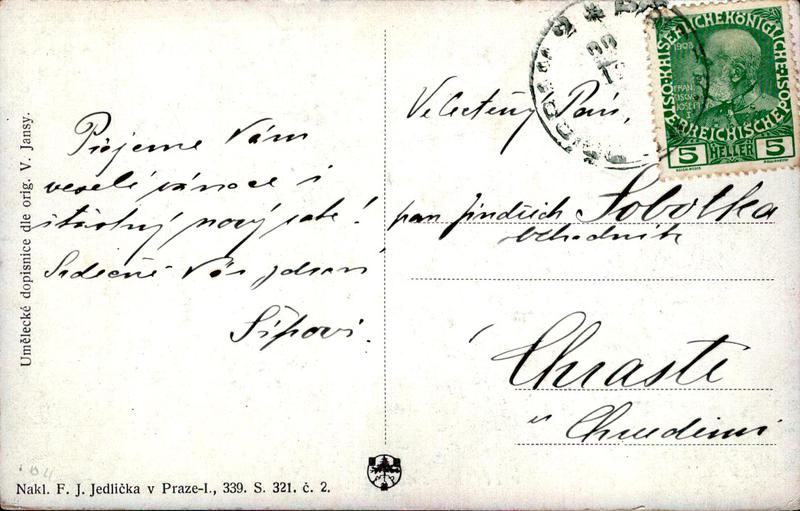 Umělecké dopisnice dle orig. V. Jansy.
Přejeme Vám
veselé vánoce i
šťastný nový rok!
Srdečně Vás zdraví
Šípovi.
Nakl. F. J. Jedlička v Praze-I., 339. S. 321. č. 2.
Velectěný Pán,
pan Jindřich Sobotka
obchodník
Chrasti
u Chrudimi
KAISERLICHE KÖNIGLICHE
ÖSTERREICHISCHE POST
1908
FRAN
CISCVS
JOSEF
I
5 HELLER 5